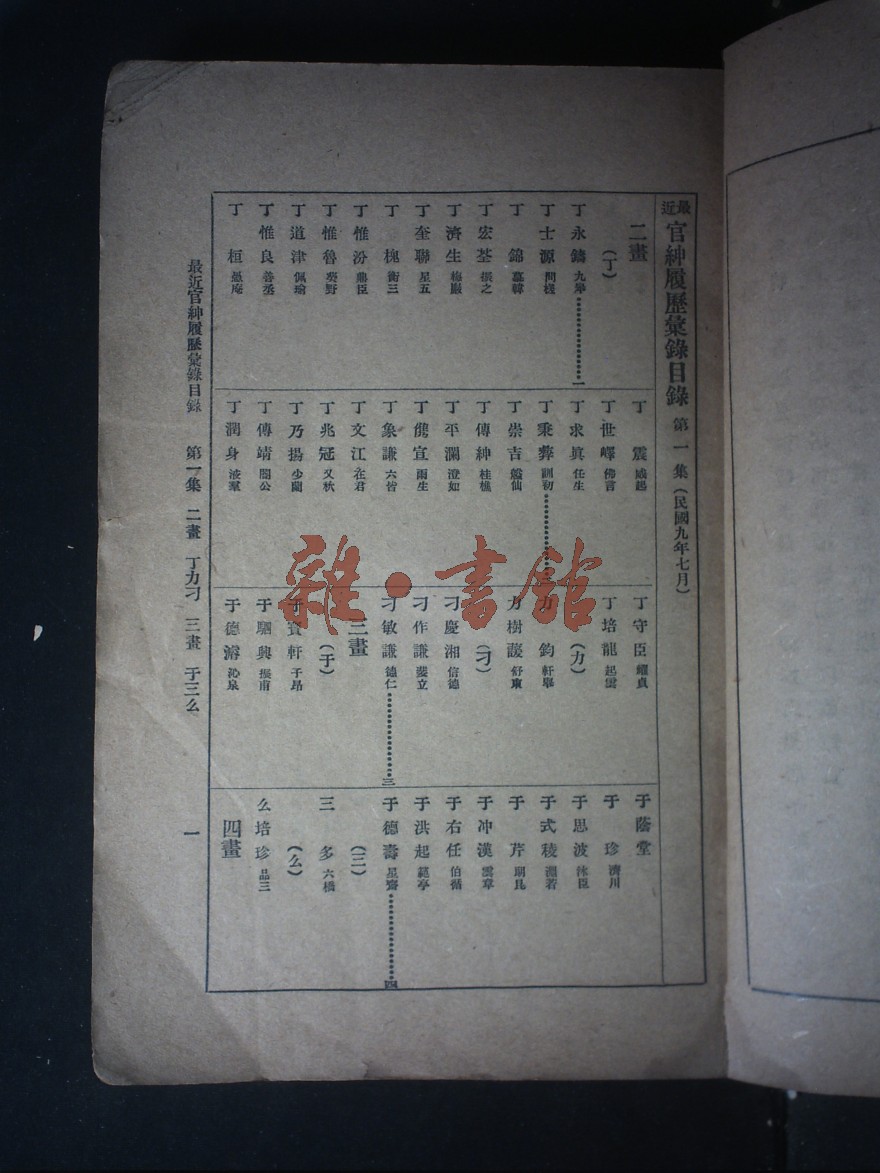 最近官紳履歷彙錄目錄 第一集(民國九年七月)
二畫
(丁)
丁永鑄 九畢………………一
丁士源 問槎
丁錦 慕韓
丁宏荃 振之
丁濟生 梅巖
丁奎聯 星五
丁槐 衡三
丁惟汾 鼎臣
丁惟魯 葵野
丁道津 佩瑜
丁惟良 善丞
丁桓 盤庵
丁震 威起
丁世嶧 佛言
丁求眞 任生
丁秉彝 訓初………………二
丁崇吉 艤仙
丁傳紳 桂樵
丁平瀾 澄如
丁儁宣 雨生
丁象謙 六皆
丁文江 在君
丁兆冠 又秋
丁乃揚 少蘭
丁傳靖 闇公
丁潤身 液羣
丁守臣 耀貞
丁培龍 起雲
(力)
力鈞 軒舉
力樹萲 舒東
(刁)
刁慶湘 信德
刁作謙 成立
刁敏謙 德仁………………三
三畫
(于)
于寶軒 子昂
于駟興 振甫
于德濬 沁泉
于蔭堂
于珍 濟川
于思波 沐臣
于式稜 淵若
于芹 嗣昆
于冲漢 雲章
于右任 伯循
于洪起 範亭
于德壽 星齋………………四
(三)
三多 六橋
(么)
么培珍 品三
四畫
最近官紳履歷彙錄目錄 第一集 二畫 丁力刁 三畫 于三么 一
雜·書館